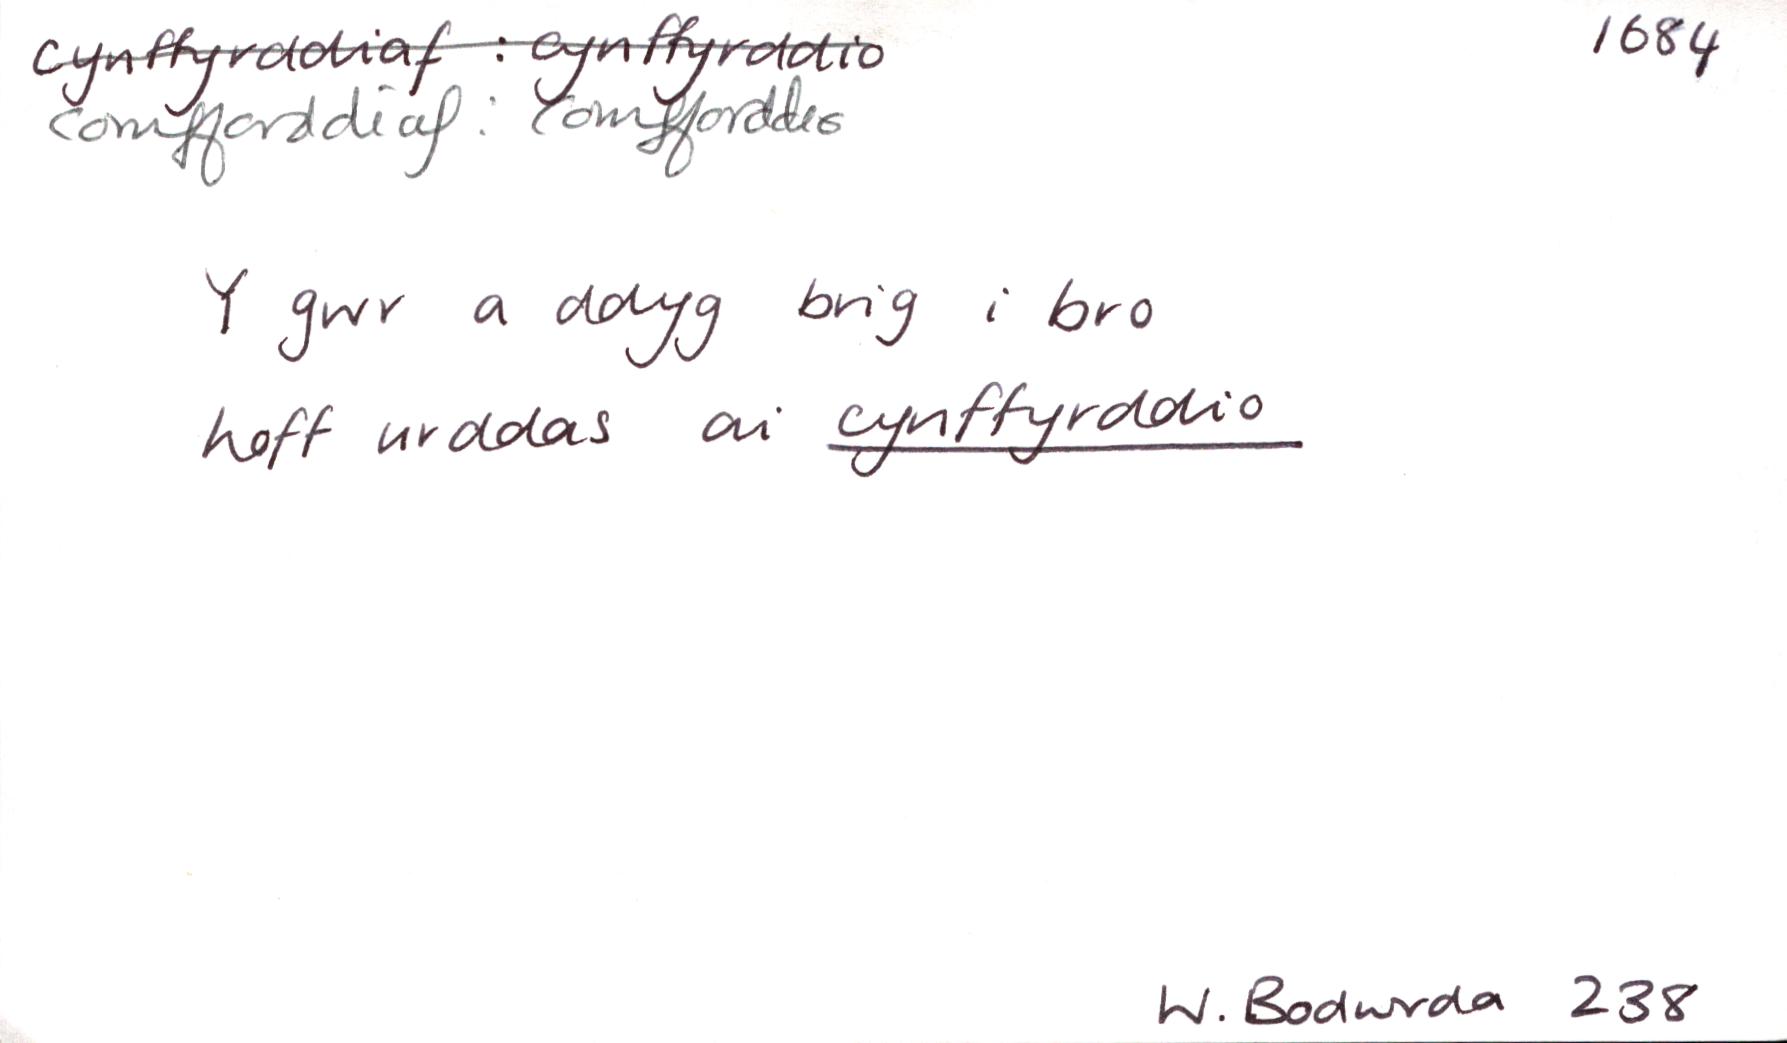 cynffyrddiaf : cynffyrddio 1684
comfforddiaf : comfforddio
Y gwr a ddyg brig i bro
hoff urddas ai cynffyrddio
W. Bodwrda 238